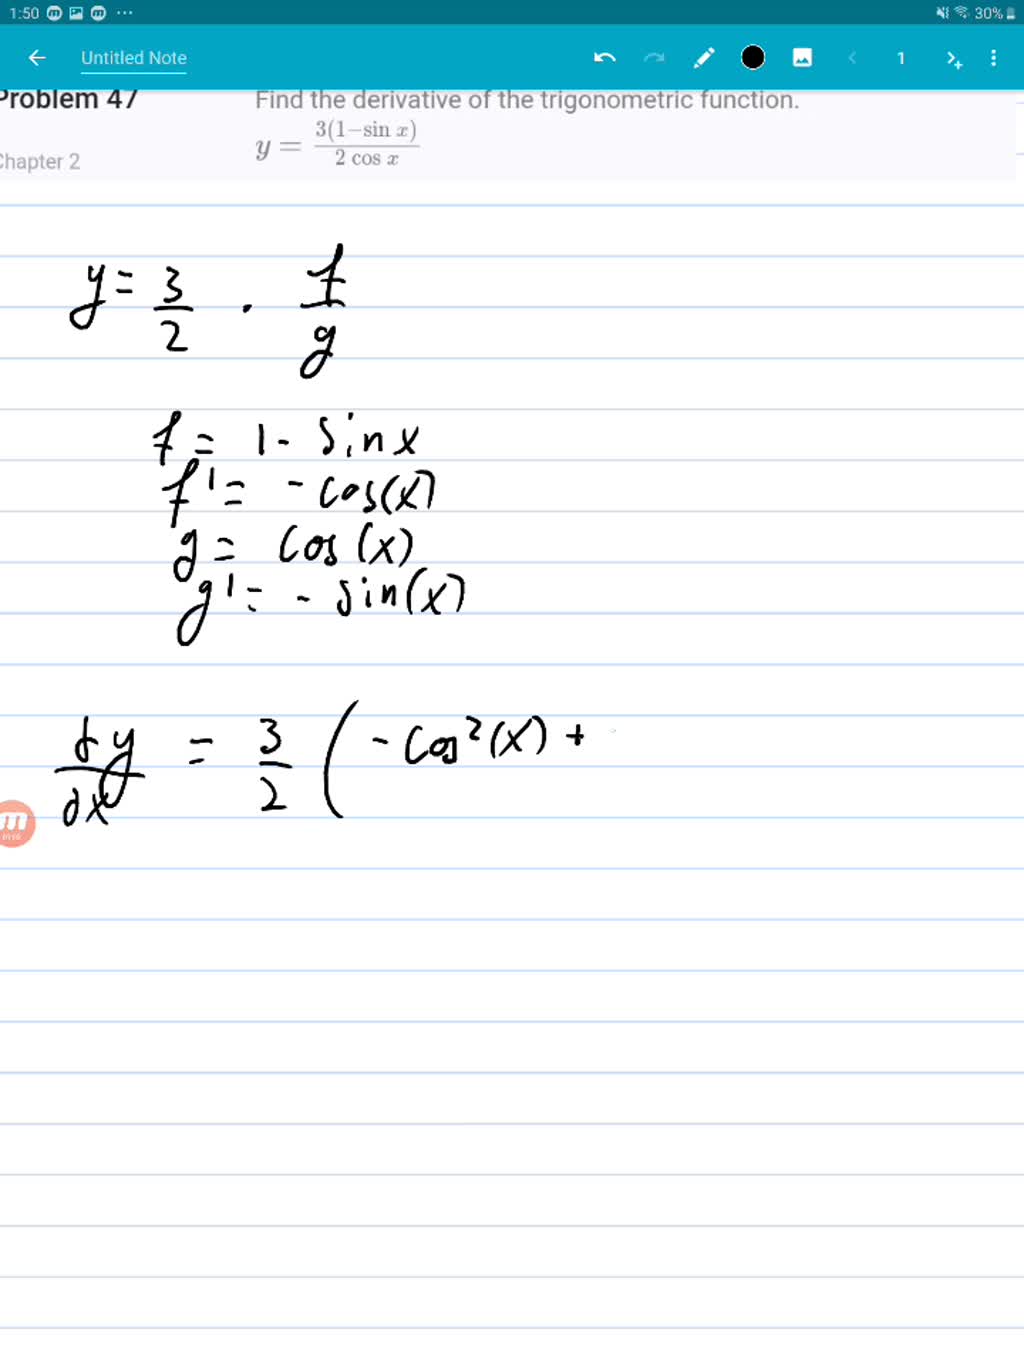 1:50 30%
Untitled Note 1
Problem 47 Find the derivative of the trigonometric function.
Chapter 2 y = 3(1−sin x) / 2 cos x
y = 3/2 · f/g
f = 1 - sin x
f' = - cos(x)
g = cos(x)
g' = - sin(x)
dy/dx = 3/2 ( - cos²(x) +